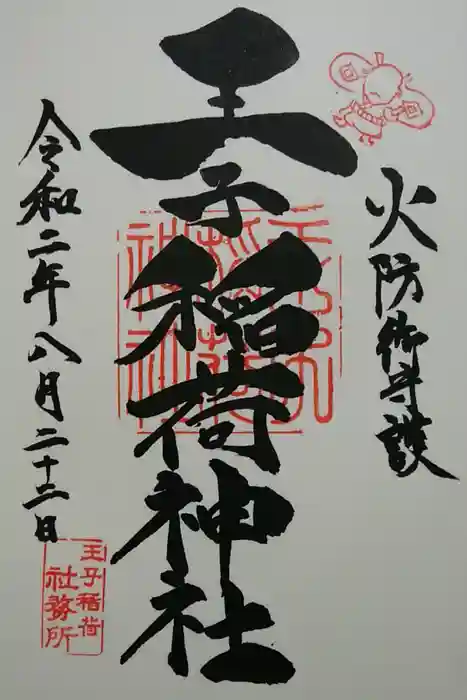 火防御守護
王子稲荷神社
令和二年八月二十二日
王子稲荷
社務所